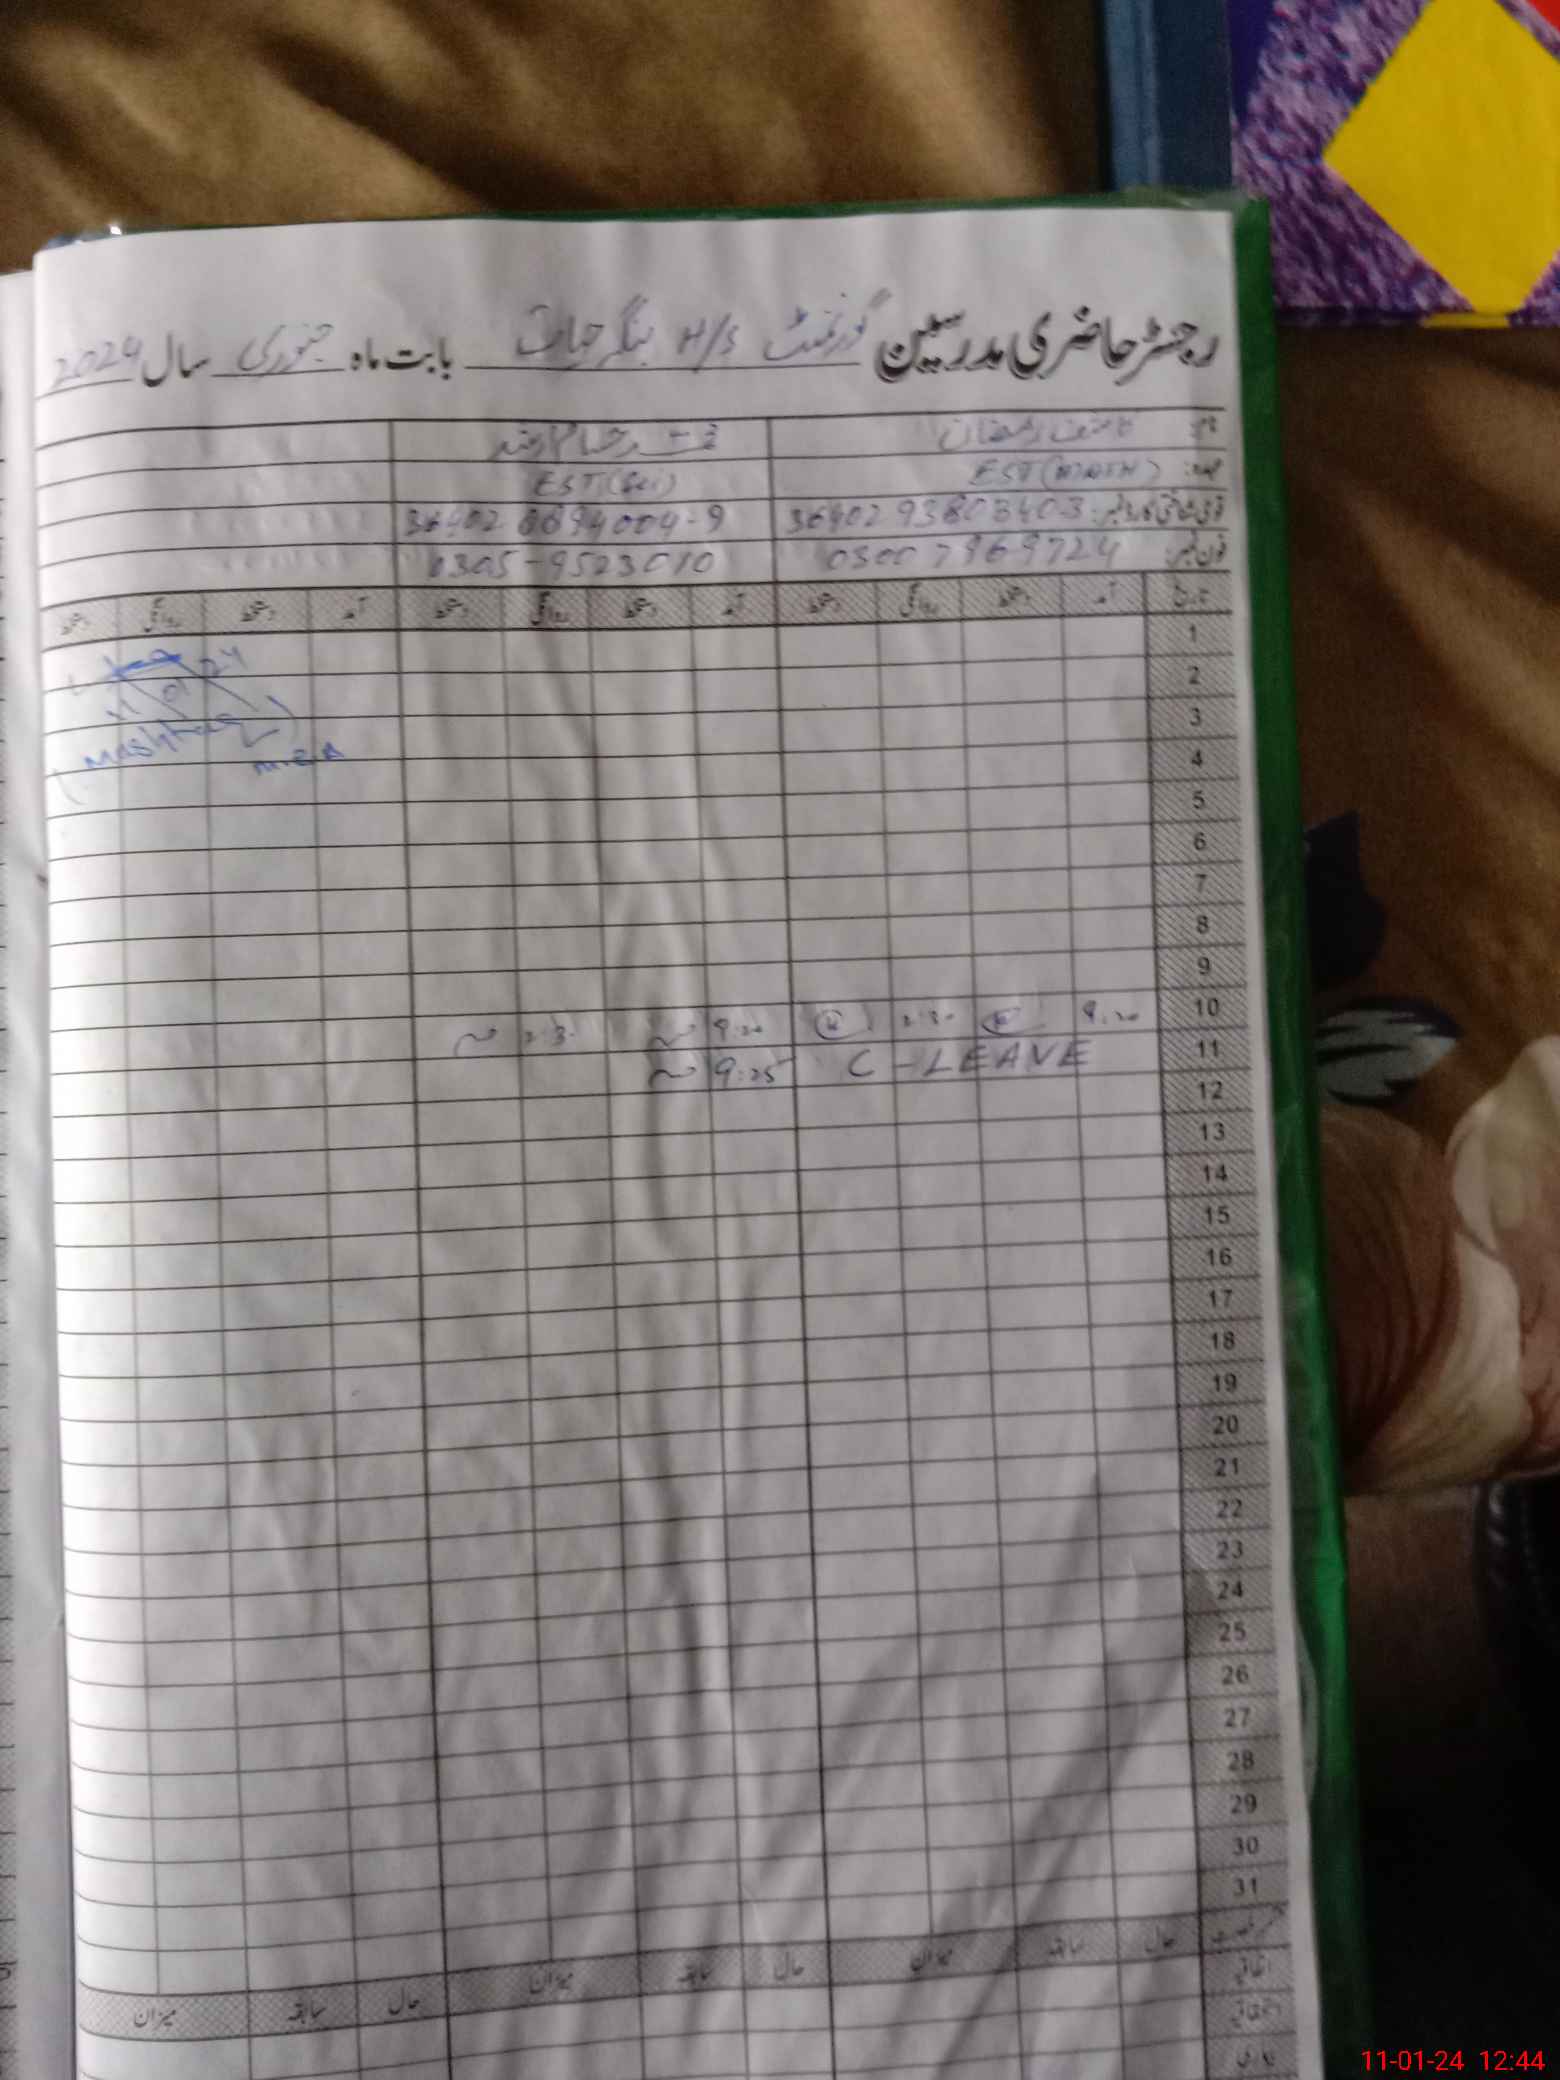 رجسٹر حاضری مدرسین گورنمنٹ H/S بابت ماہ جنوری سال 2024
نام:
عہدہ: EST (MATH) EST (Sci)
قومی شناختی کارڈ نمبر:
فون نمبر: 0300 7969724 0305-9523010
تاریخ آمد دستخط روانگی دستخط آمد دستخط روانگی دستخط آمد دستخط روانگی دستخط
1
2
11 01 24
3
(Mashtaq)
4
M.E.A
5
6
7
8
9
10 9:20 2:30 9:20 2:30
11 C-LEAVE 9:25
12
13
14
15
16
17
18
19
20
21
22
23
24
25
26
27
28
29
30
31
حال سابقہ میزان حال سابقہ میزان حال سابقہ میزان
اتفاقیہ
11-01-24 12:44